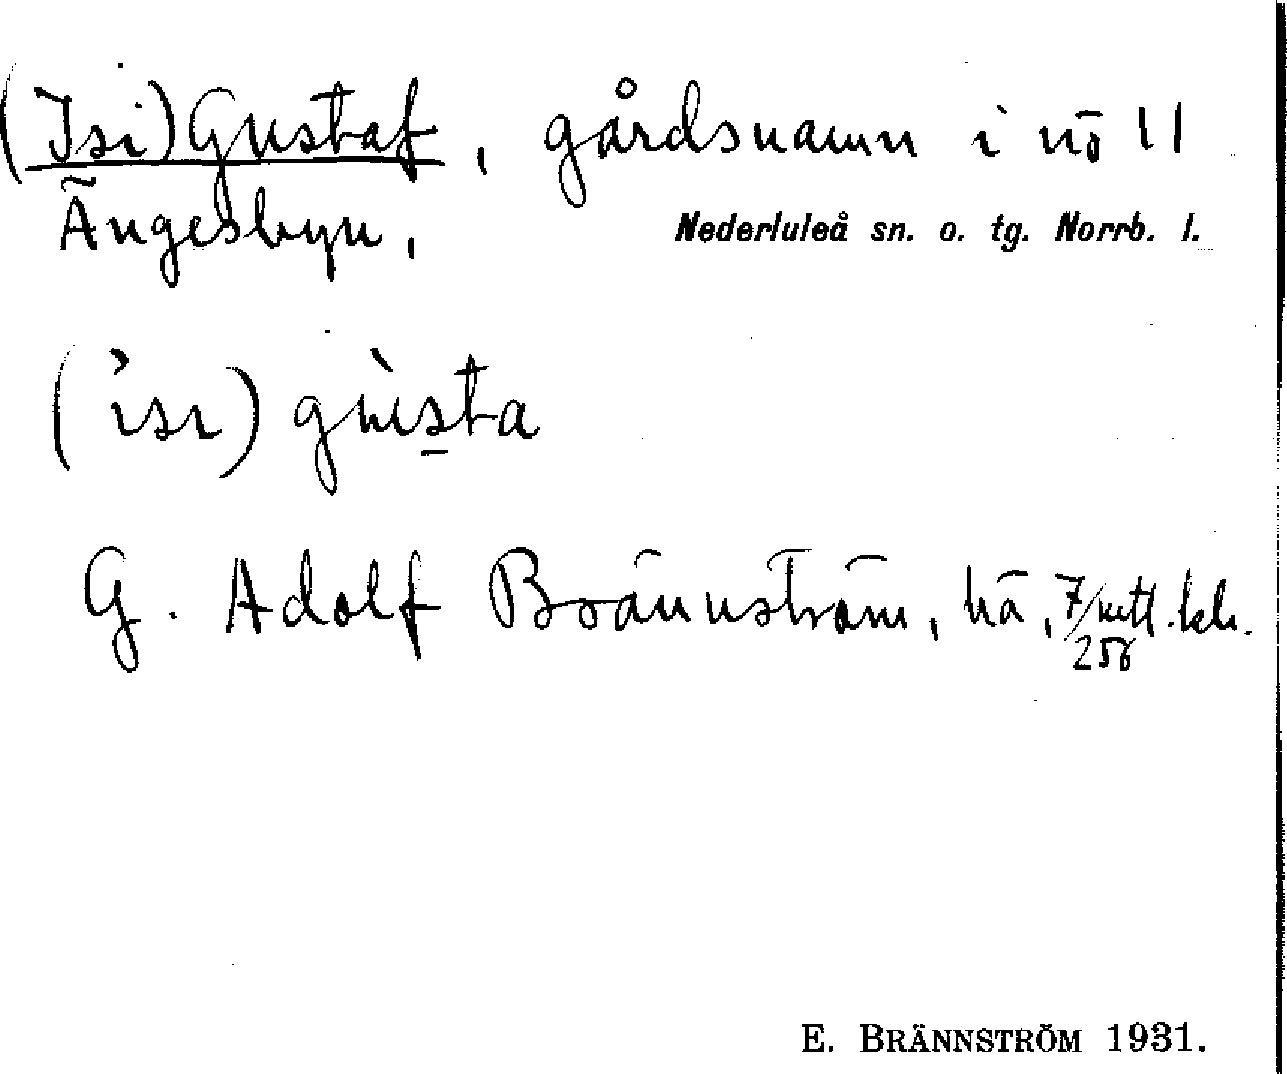 (Isi)Gustaf, gårdsnamn i nö 11
Ängesbyn, Nederluleå sn. o. tg. Norrb. l.
(ìsı) gùsta
G. Adolf Brännström, hä, 7/
256
E. BRÄNNSTRÖM 1931.